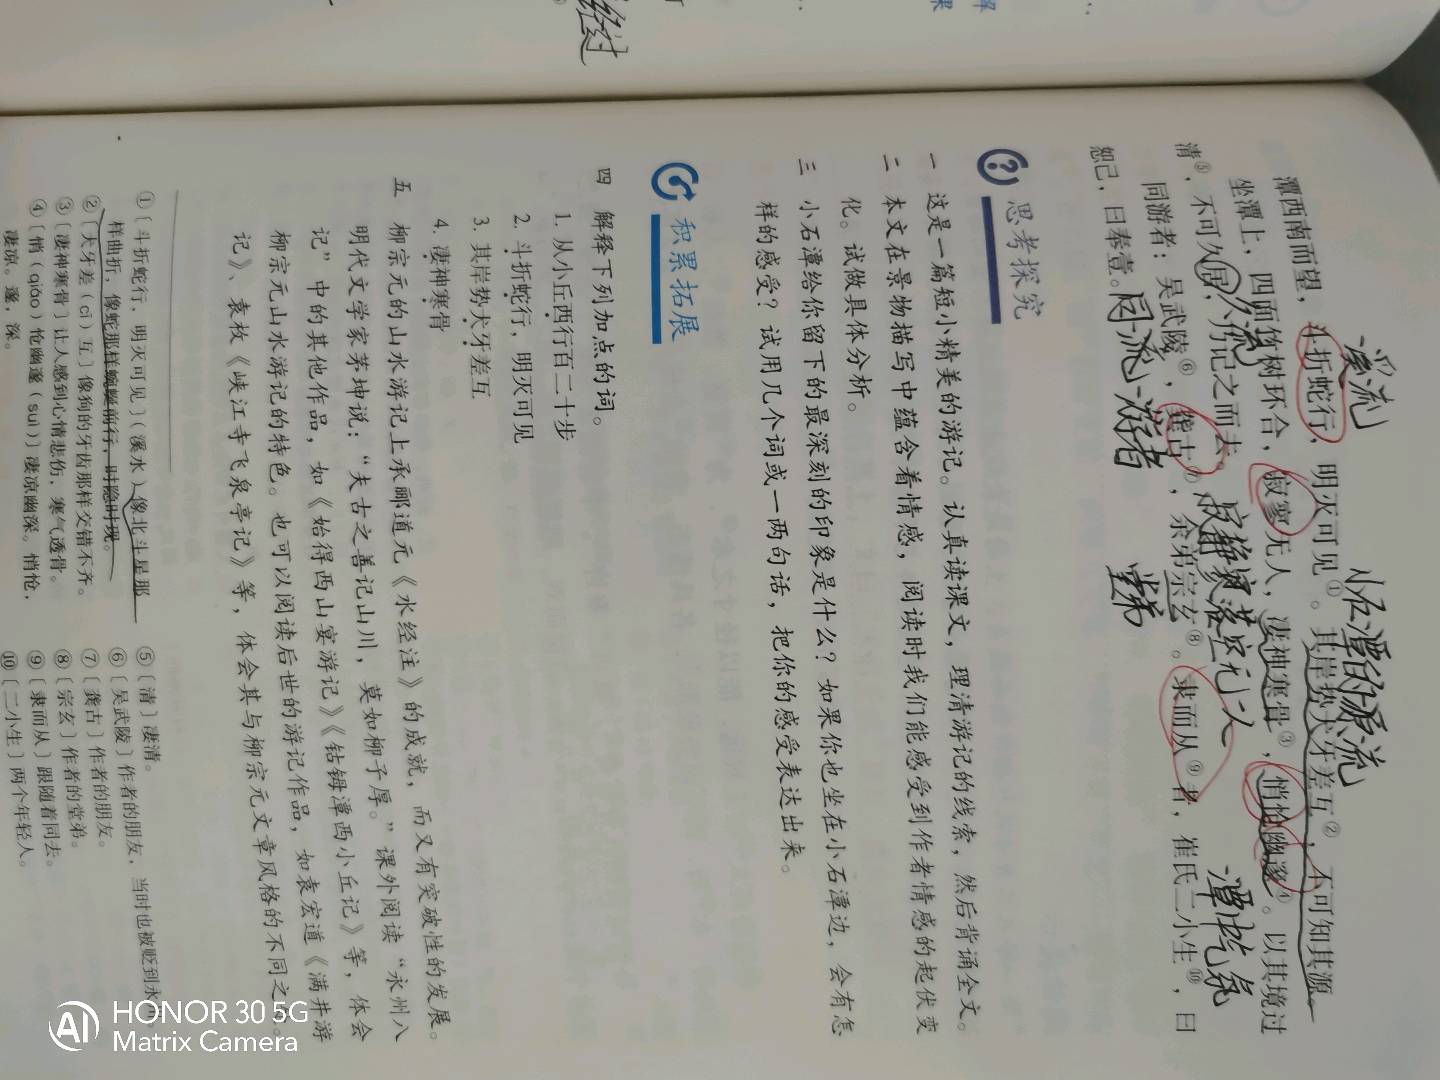 经过
溪流
小石潭的源流
潭西南而望，斗折蛇行，明灭可见①。其岸势犬牙差互②，不可知其源。
坐潭上，四面竹树环合，寂寥无人，凄神寒骨③，悄怆幽邃④。以其境过
清⑤，不可久居，乃记之而去。
潭中气氛
同游者：吴武陵⑥，龚古⑦，余弟宗玄⑧。隶而从⑨者，崔氏二小生⑩，曰
恕己，曰奉壹。
同流 游者
堂弟
思考探究
一 这是一篇短小精美的游记。认真读课文，理清游记的线索，然后背诵全文。
二 本文在景物描写中蕴含着情感，阅读时我们能感受到作者情感的起伏变
化。试做具体分析。
三 小石潭给你留下的最深刻的印象是什么？如果你也坐在小石潭边，会有怎
样的感受？试用几个词或一两句话，把你的感受表达出来。
积累拓展
四 解释下列加点的词。
1. 从小丘西行百二十步
2. 斗折蛇行，明灭可见
3. 其岸势犬牙差互
4. 凄神寒骨
五 柳宗元的山水游记上承郦道元《水经注》的成就，而又有突破性的发展。
明代文学家茅坤说：“夫古之善记山川，莫如柳子厚。”课外阅读“永州八
记”中的其他作品，如《始得西山宴游记》《钴鉧潭西小丘记》等，体会
柳宗元山水游记的特色。也可以阅读后世的游记作品，如袁宏道《满井游
记》、袁枚《峡江寺飞泉亭记》等，体会其与柳宗元文章风格的不同之处。
①〔斗折蛇行，明灭可见〕（溪水）像北斗星那
样曲折，像蛇那样蜿蜒前行，时隐时现。
②〔犬牙差（cī）互〕像狗的牙齿那样交错不齐。
③〔凄神寒骨〕让人感到心情悲伤，寒气透骨。
④〔悄（qiǎo）怆幽邃（suì）〕凄凉幽深。悄怆，
凄凉。邃，深。
⑤〔清〕凄清。
⑥〔吴武陵〕作者的朋友，当时也被贬到永州。
⑦〔龚古〕作者的朋友。
⑧〔宗玄〕作者的堂弟。
⑨〔隶而从〕跟随着同去。
⑩〔二小生〕两个年轻人。
HONOR 30 5G
Matrix Camera